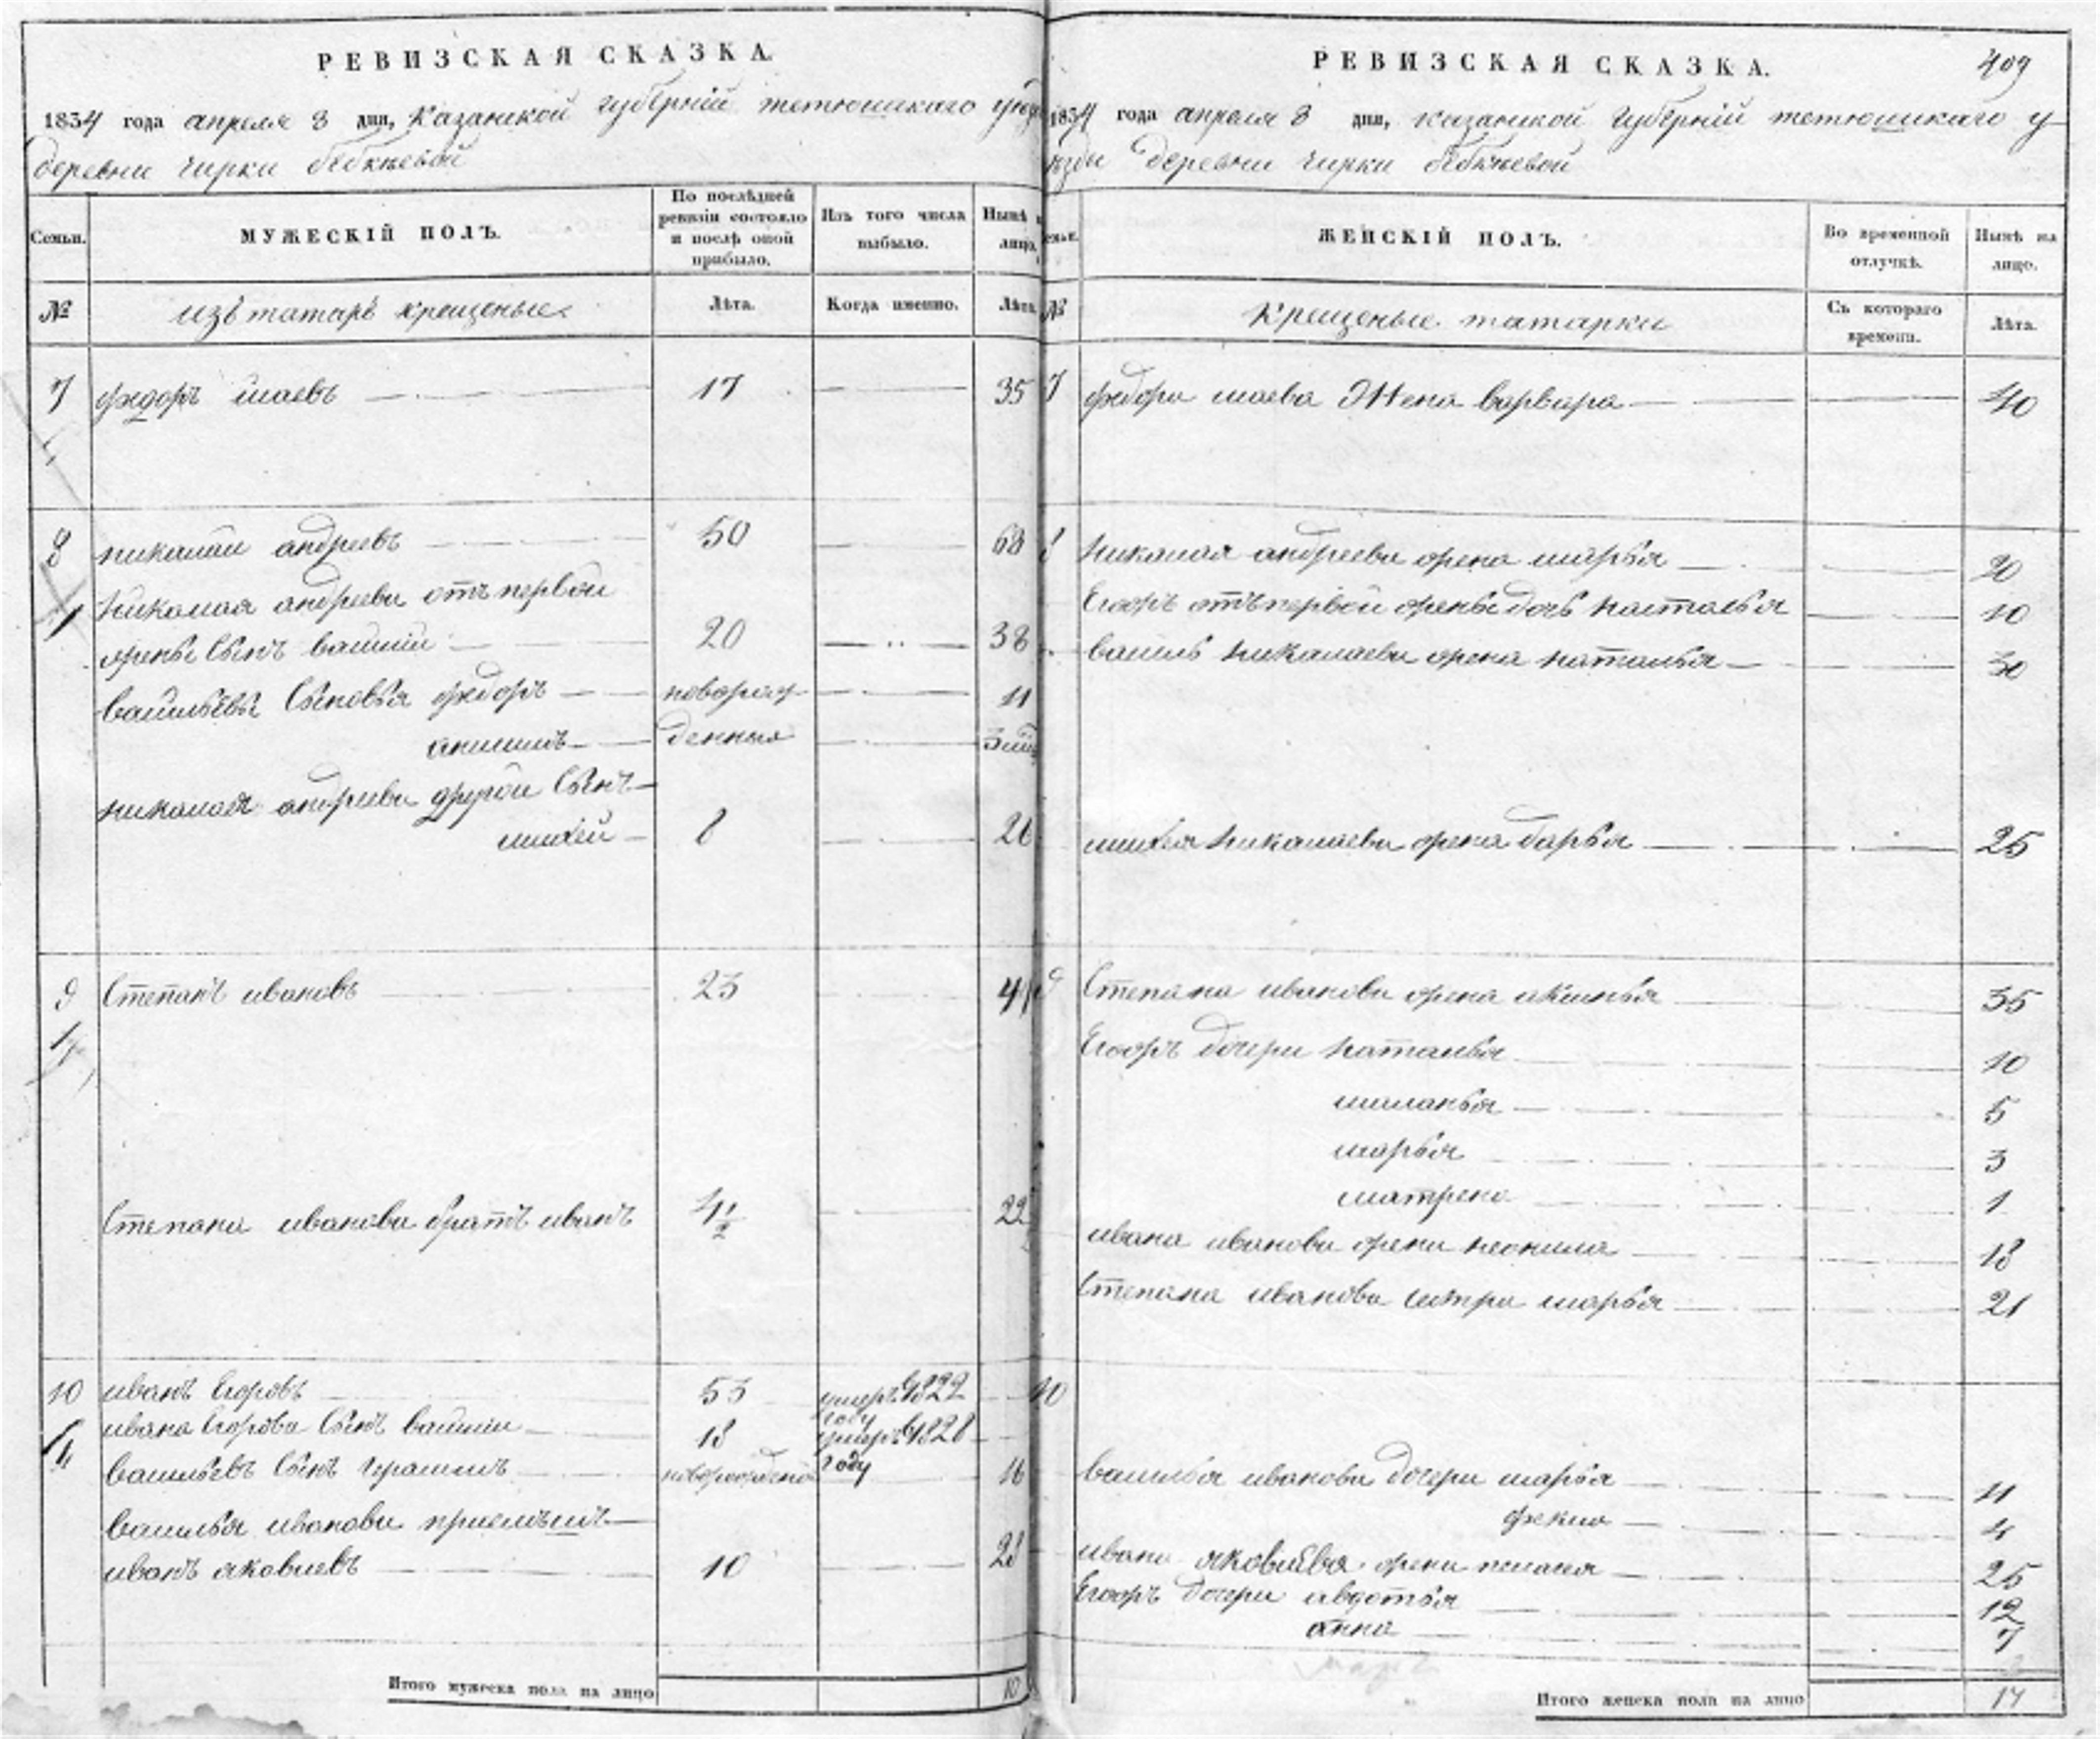 РЕВИЗСКАЯ СКАЗКА.
1834 года апреля 3 дня, казанской губерніи тетюшскаго уезда
деревни чирки
Семьи.
МУЖЕСКІЙ ПОЛЪ.
По послѣдней ревизіи состояло и послѣ оной прибыло.
Изъ того числа выбыло.
Нынѣ на лицо.
№
изъ татаръ крещеные
Лѣта.
Когда именно.
Лѣта
7 федоръ исаевъ 17 35
8 николаи андреевъ 50 68
Николая андреева отъ первои
жены сынъ василіи 20 38
васильевы сыновья федоръ новорож 11
денныя
николая андреева другои сынъ
михеи 8 26
9 Степанъ ивановъ 23 41
Степана иванова братъ иванъ 4 1/2 22
10 иванъ егоровъ 53 умеръ в 1822
году
ивана егорова сынъ василіи 18 умеръ в 1828
году
васильевъ сынъ герасимъ новорожденно 16
василья иванова приемышъ
иванъ яковлевъ 10 28
Итого мужеска пола на лицо 10
РЕВИЗСКАЯ СКАЗКА.
409
1834 года апреля 3 дня, казанской губерніи тетюшскаго у
езда деревни чирки
Семьи.
ЖЕНСКІЙ ПОЛЪ.
Во временной отлучкѣ.
Нынѣ на лицо.
№
Крещеные татарки
Съ котораго времени.
Лѣта.
7 федора исаева жена варвара 40
8 николая андреева жена марья 20
Егоръ отъ первой жены дочь настасья 10
василья николаева жена наталья 30
михея николаева жена дарья 25
9 Степана иванова жена аксинья 35
Егоръ дочери наталья 10
маланья 5
марья 3
матрена 1
ивана иванова жена неонила 18
Степана иванова сестра марья 21
10
василья иванова дочери марья 11
фекла 4
ивана яковлева жена 25
Егоръ дочери авдотья 12
анна 7
Итого женска пола на лицо 17